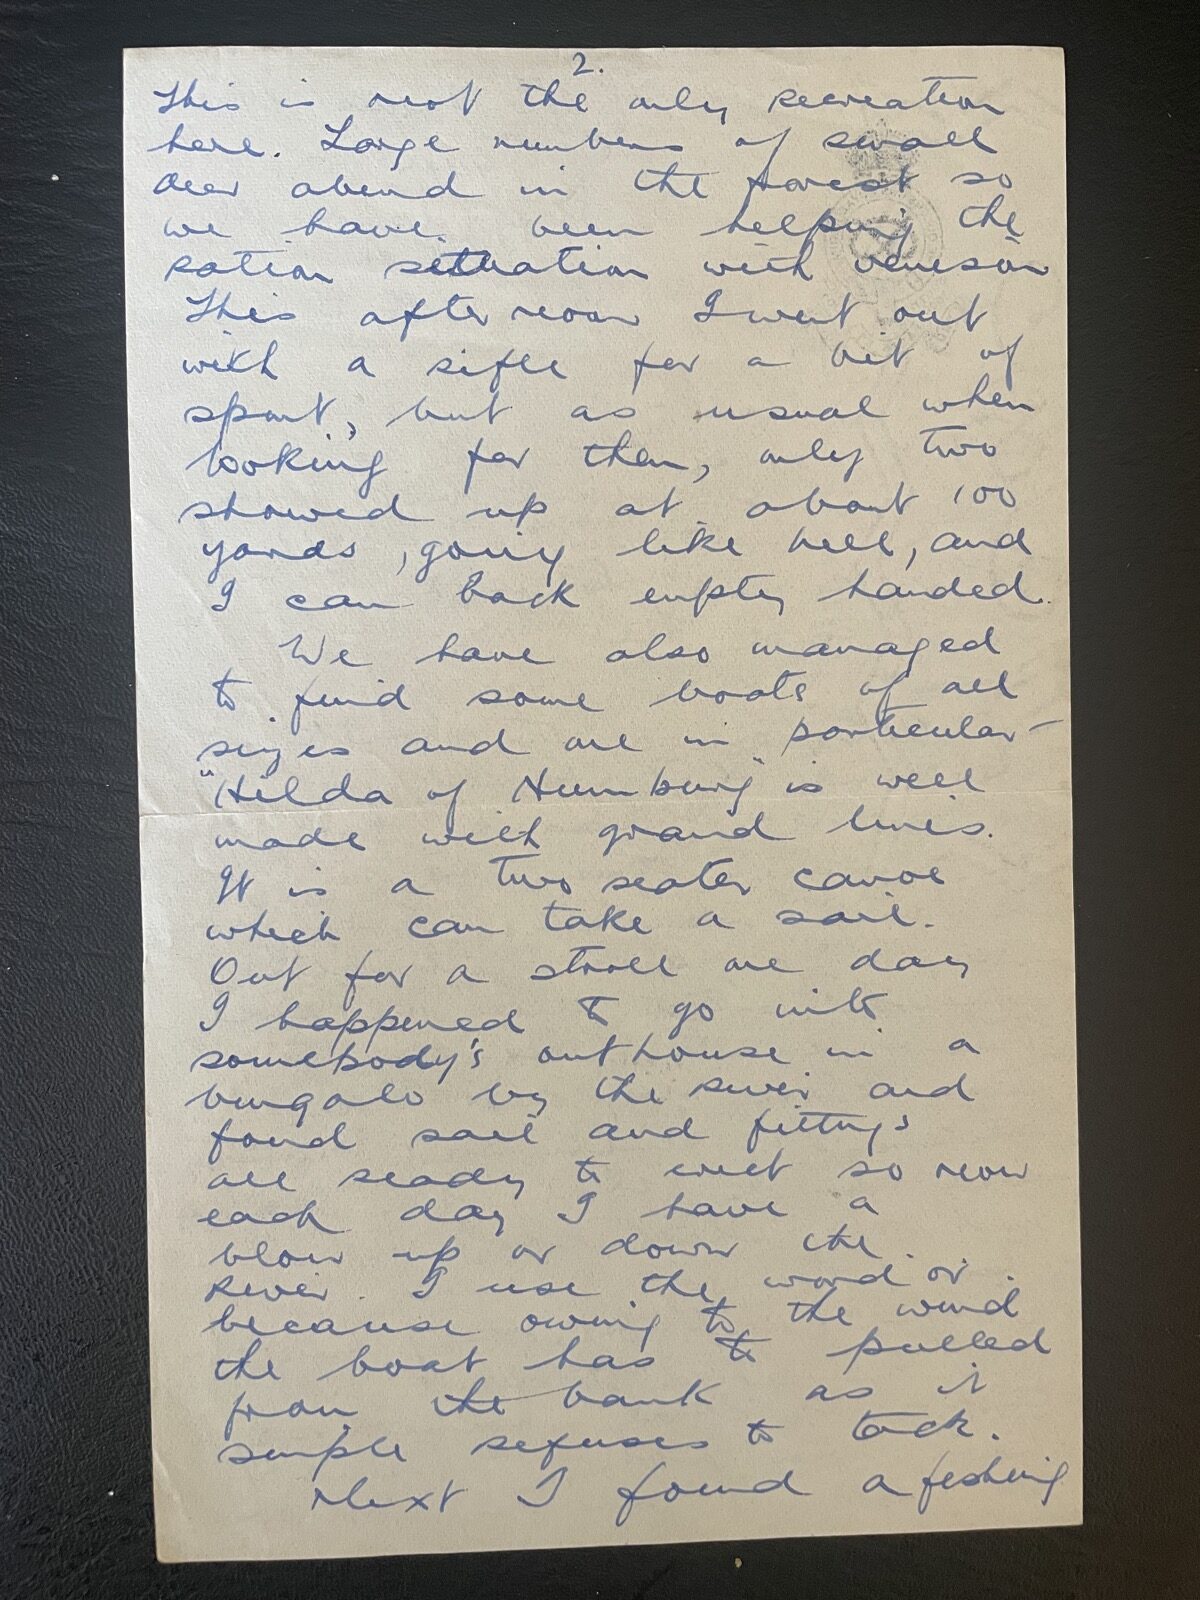 2.
This is not the only recreation
here. Large numbers of small
deer abound in the forest so
we have been helping the
ration situation with venison
This afternoon I went out
with a rifle for a bit of
sport, but as usual when
looking for them, only two
showed up at about 100
yards, going like hell, and
I cam back empty handed.
We have also managed
to find some boats of all
sizes and one in particular -
"Hilda of Numburg" is well
made with grand lines.
It is a two seater canoe
which can take a sail.
Out for a stroll one day
I happened to go into
somebody's outhouse in a
bungalo by the river and
found sail and fittings
all ready to erect so now
each day I have a
blow up or down the
river. I use the word or
because owing to the wind
the boat has to pulled
from the bank as it
simple refuses to tack.
Next I found a fishing